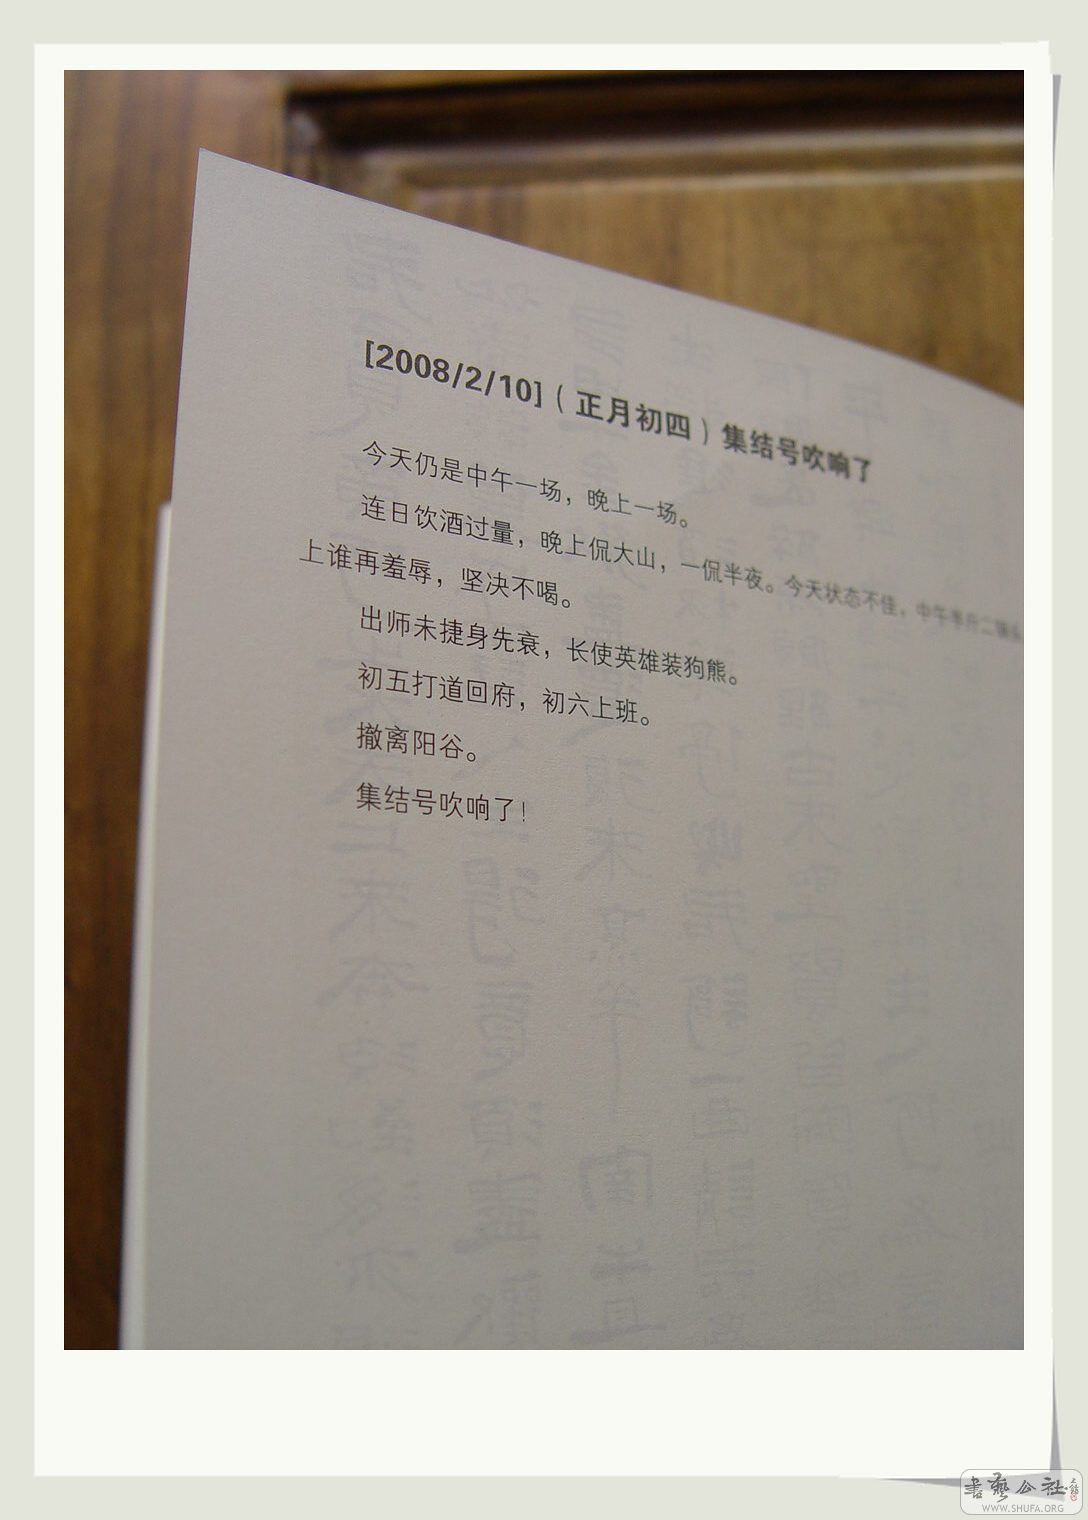 [2008/2/10]（正月初四）集结号吹响了
今天仍是中午一场，晚上一场。
连日饮酒过量，晚上侃大山，一侃半夜。今天状态不佳，中午半斤二锅头
上谁再羞辱，坚决不喝。
出师未捷身先衰，长使英雄装狗熊。
初五打道回府，初六上班。
撤离阳谷。
集结号吹响了！
書藝公社
WWW.SHUFA.ORG